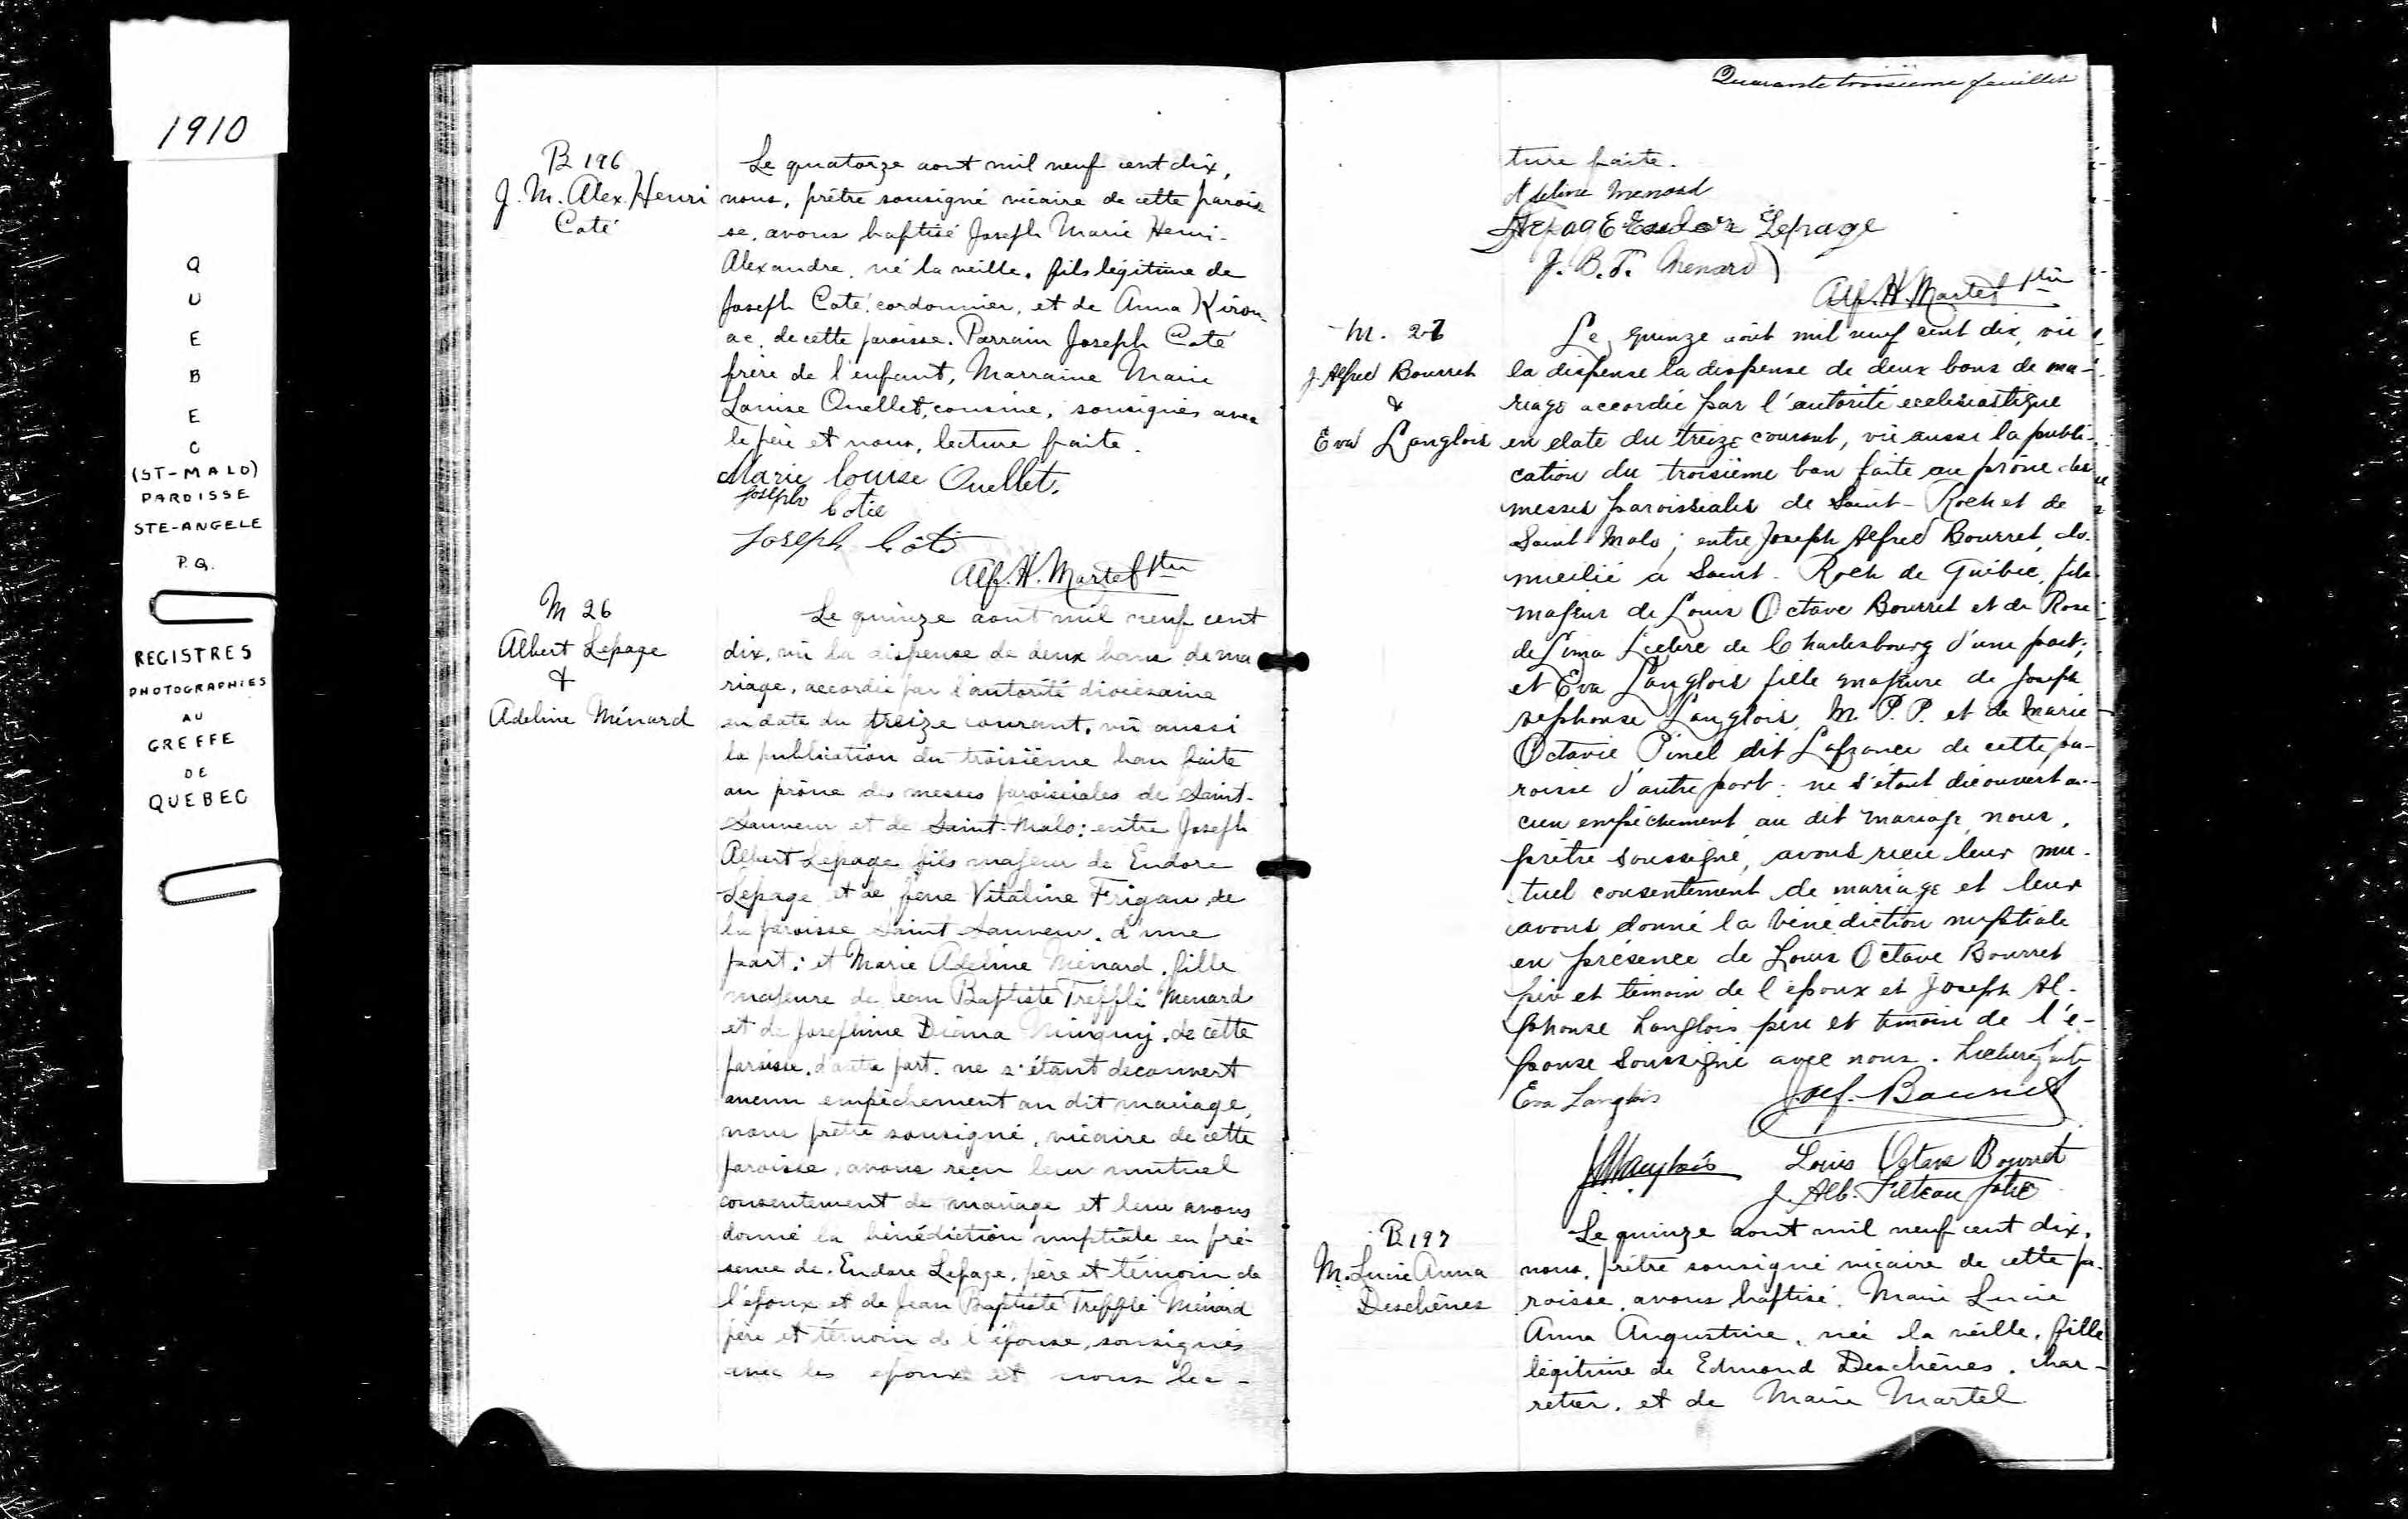 1910
Q
U
E
B
E
C
(ST-MALO)
PAROISSE
STE-ANGELE
P.Q.
REGISTRES
PHOTOGRAPHIES
AU
GREFFE
DE
QUEBEC
B 196
J. M. Alex. Henri
Coté
Le quatorze aout mil neuf cent dix,
nous, prêtre sousigné vicaire de cette parois
se, avons baptisé Joseph Marie Henri-
Alexandre, né la veille, fils légitime de
Joseph Coté, cordonnier, et de Anna Kirou-
ac, de cette paroisse. Parrain Joseph Coté
frère de l'enfant, Marraine Marie
Louise Ouellet, cousine, sousignés avec
le père et nous, lecture faite.
Marie Louise Ouellet.
Joseph Cotie
Joseph Coté
Alf. H. Martel Ptre
M 26
Albert Lepage
&
Adeline Ménard
Le quinze aout mil neuf cent
dix, vu la dispense de deux bans de ma
riage, accordée par l'autorité diocésaine
en date du treize courant, vu aussi
la publication du troisième ban faite
au prône des messes paroissiales de Saint-
Sauveur et de Saint-Malo; entre Joseph
Albert Lepage fils majeur de Eudore
Lepage et de feue Vitaline Frigau, de
la paroisse Saint Sauveur, d'une
part; et Marie Adeline Ménard, fille
majeure de Jean Baptiste Trefflé Menard
et de Josephine Diana Minguy, de cette
paroisse, d'autre part. ne s'étant decouvert
aucun empêchement au dit mariage,
nous prêtre sousigné, vicaire de cette
paroisse, avons reçu leur mutuel
consentement de mariage et leur avons
donné la bénédiction nuptiale en pré-
sence de Eudore Lepage, père et témoin de
l'époux et de Jean Baptiste Trefflé Ménard
père et témoin de l'épouse, sousignés
avec les epoux et nous lec-
Quarante troisième feuillet
ture faite.
Adeline Menard
Lepage Eudore Lepage
J. B. T. Menard
Alf. H. Martel Ptre
M. 27
J. Alfred Bourret
&
Eva Langlois
Le quinze août mil neuf cent dix, vu
la dispense la dispense de deux bans de ma-
riage accordée par l'autorité ecclésiastique
en date du treize courant, vu aussi la publi-
cation du troisième ban faite au prône des
messes paroissiales de Saint-Roch et de
Saint-Malo; entre Joseph Alfred Bourret, do-
micilié a Saint-Roch de Québec, fils
majeur de Louis Octave Bourret et de Rose
de Lima L de Charlesbourg d'une part;
et Eva Langlois fille majeure de Joseph
Alphonse Langlois, M. P. P. et de Marie
Octavie Pinel dit Lafrance de cette pa-
roisse d'autre part; ne s'étant découvert au-
cun empêchement au dit mariage, nous,
prêtre soussigné, avons reçu leur mu-
tuel consentement de mariage et leur
avons donné la bénédiction nuptiale
en présence de Louis Octave Bourret
père et témoin de l'époux et Joseph Al-
phonse Langlois père et témoin de l'é-
pouse soussigné avec nous. Lecture faite
Eva Langlois J. Alf. Bourret
J A Langlois Louis Octave Bourret
J. Alb. Filteau Ptre
B 197
M. Lucie Anna
Deschênes
Le quinze aout mil neuf cent dix,
nous, prêtre sousigné vicaire de cette pa-
roisse, avons baptisé, Marie Lucie
Anna Augustine, née la veille, fille
légitime de Edmond Deschênes, char-
retier, et de Marie Martel